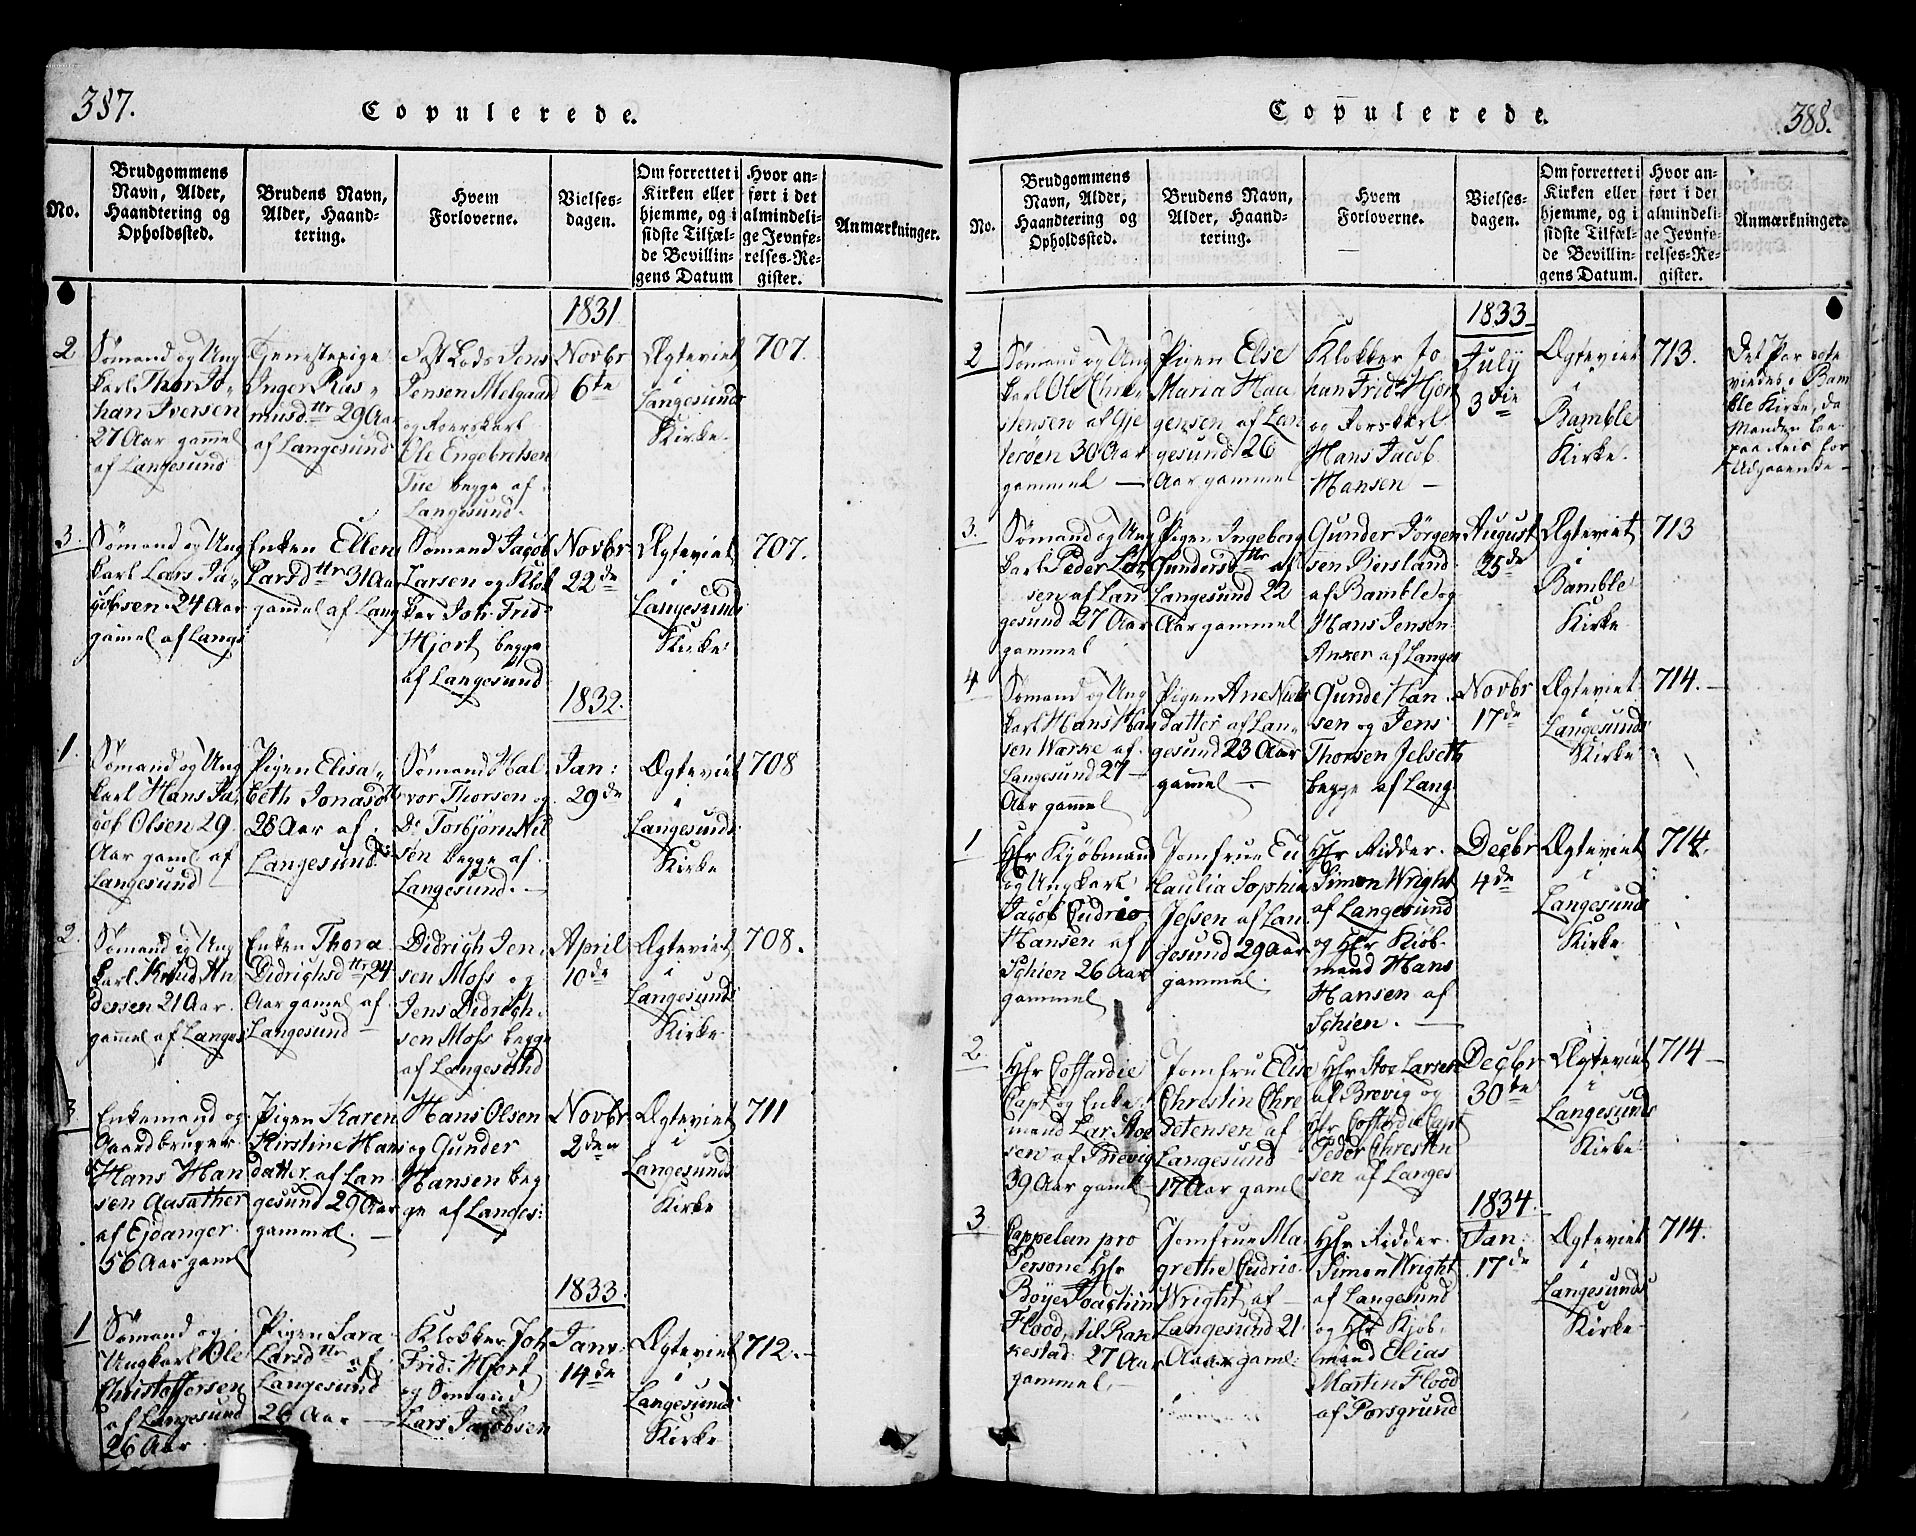 387.
Copulerede.
No.
Brudgommens
Navn, Alder,
Haandtering og
Opholdssted.
Brudens Navn,
Alder, Haand-
tering.
Hvem
Forloverne.
Vielses-
dagen.
Om forrettet i
Kirken eller
hjemme, og i
sidste Tilfæl-
de Bevillin-
gens Datum
Hvor an-
ført i det
almindeli-
ge Jevnfø-
relses-Re-
gister.
Anmærkninger.
1831
2
Sømand og Ung
karl Thor Jo-
han Iversen
27 Aar gammel
af Langesund
Tjenestepige
Inger Ras-
musdttr 29 Aar
af Langesund
Fast Lods Jens
Jensen Melgaard
og
Ole Engebretsen
Tue begge af
Langesund.
Novbr
6te
Ægteviet
i
Langesunds
Kirke.
707.
3.
Sømand og Ung
karl Lars Ja-
cobsen 24 Aar
gamel af Langs
Enken Ellen
Larsdttr 31 Aar
gamel af Lang
Sømand Jacob
Larsen og Klok
ker Joh. Frid.
Hjort begge
af Langesund
Novbr
22de
Ægteviet
i
Langesunds
Kirke.
707.
1832.
1
Sømand og Ung
karl Hans Ja-
cob Olsen 29
Aar gaml af
Langesund
Pigen Elisa-
beth Jonasd
28 Aar af
Langesund
Sømand Hal
vor Thorsen og
Do Torbjørn Nil
sen begge af
Langesund.
Jan:
29de
Ægteviet
i
Langesunds
Kirke
708
2.
Sømand og Ung
karl Knud An
dersen 21 Aar
gammel af Langes
Enken Thora
Didrichsdttr 24
Aar gamel af
Langesund
Didrigh Jen-
sen Moss og
Jens Didrigh-
sen Moss begge
af Langesund
April
10de
Ægteviet
i
Langesunds
Kirke
708.
3
Enkemand og
Gaardbruger
Hans Han
sen Aasather
af Ejdanger
56 Aar gaml
Pigen Karen
Kirstine Hans
datter af Lan
gesund 29 Aar
gammel.
Hans Olsen
og Gunder
Hansen beg
ge af Langes:
Novbr
2den
Ægteviet
i
Langesunds
Kirke
711
1833.
1
Sømand og
Ungkarl Ole
Christoffersen
af Langesund
26 Aar
Pigen Sara
Larsdttr af
Langesund
26 Aar
Klokker Joh
Frid: Hjort
og Sømand
Lars Jacobsen
Janv:
14de
Ægteviet
i
Langesunds
Kirke
712.
Copulerede.
388.
No.
Brudgommens
Navn, Alder,
Haandtering og
Opholdssted.
Brudens Navn,
Alder, Haand-
tering.
Hvem
Forloverne.
Vielses-
dagen.
Om forrettet i
Kirken eller
hjemme, og i
sidste Tilfæl-
de Bevillin-
gens Datum.
Hvor an-
ført i det
almindeli-
ge Jevnfø-
relses-Re-
gister.
Anmærkninger.
1833
2
Sømand og Ung
karl Ole Chri-
stensen af Gje
terøen 30 Aar
gammel
Pigen Else
Maria Haa
gensen af Lan
gesund 26
Aar gammel
Klokker Jo
han Fridk Hjort
og
Hans Jacob
Hansen
July
3die
Ægteviet
i
Bamble
Kirke.
713.
Det Par
viedes i Bam
ble Kirke, da
Manden
paa Reis for
Udgaaende
3.
Sømand og Ung
karl Peder Lar
sen af Lan
gesund 27 Aar
gammel
Pigen Ingeborg
Gundersdttr af
Langesund 22
Aar gammel
Gunder Jörgen
sen Bierland
af Bamble og
Hans Jensen
Anker af Langes
August
25de
Ægteviet
i
Bamble
Kirke
713
4
Sømand og Ung
karl Hans Han
sen Warke af
Langesund 27
Aar gammel
Pigen Ane Niels
datter af Lan-
gesund 23 Aar
gamel
Gunde Han
sen og Jens
Thorsen Jelseth
begge af Lang
Novbr
17de
Ægteviet
i
Langesunds
Kirke
714.
1
Hr Kjöbmand
og Ungkarl
Jacob Cudrio
Hansen af
Schien 26 Aar
gammel
Jomfrue Eu
laulia Sophie
Jessen af Lan
gesund 29 Aar
gammel.
Hr Ridder
Simon Wright
af Langesund
og Hr Kiöb-
mand Hans
Hansen af
Schien.
Decbr
4de
Ægteviet
i
Langesunds
Kirke
714.
2.
Hr Coffardie
Capt og Enke
mand Lar Stoe
sen af Brevig
39 Aar gaml
Jomfru Elise
Chrestin Chre
stensen af
Langesund
17 Aar gaml
Hr Stoe Larsen
af Brevig og
Hr Coffardie Capt
Peder Chresten
sen af Langes
Decbr
30te
Ægteviet
i
Langesunds
Kirke
714
1834.
3
Cappelan pro
Persone Hr
Böye Joachim
Flood, til Ran
kestad 27 Aar
gammel
Jomfrue Ma
grethe Cudrio
Wright af
Langesund 21
Aar gaml:
Hr Ridder
Simon Wright
af Langesund
og Hr Kjöb-
mand Elias
Martin Flood
af Porsgrund
Jan:
17de
Ægteviet
i
Langesunds
Kirke
714.